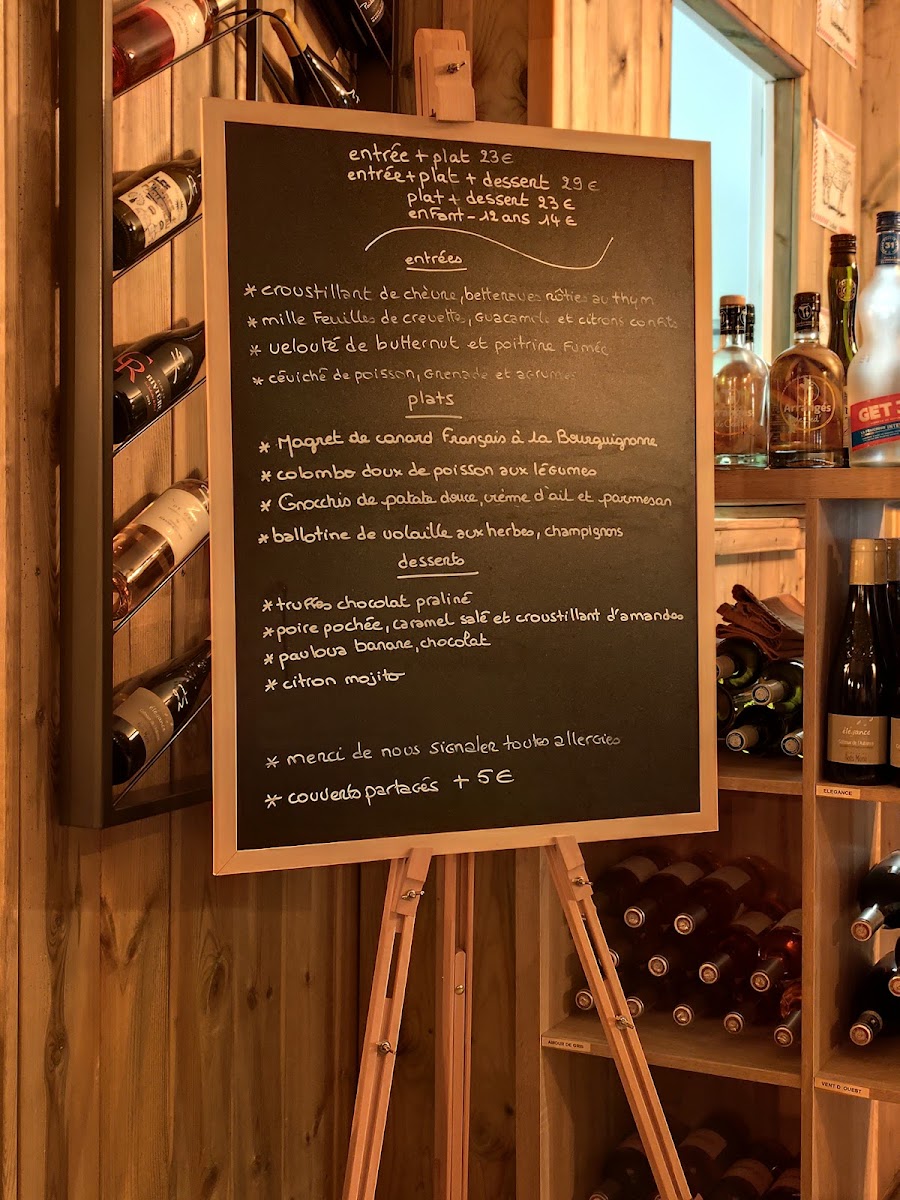 entrée + plat 23€
entrée + plat + dessert 29€
plat + dessert 23€
enfant - 12 ans 14€
entrées
* croustillant de chèvre, betteraves rôties au thym
* mille Feuilles de crevette, Guacamole et citrons confits
* velouté de butternut et poitrine Fumée
* céviché de poisson, Grenade et agrumes
plats
* Magret de canard Français à la Bourguignonne
* colombo doux de poisson aux légumes
* Gnocchis de patate douce, crème d'ail et parmesan
* ballotine de volaille aux herbes, champignons
desserts
* truffes chocolat praliné
* poire pochée, caramel salé et croustillant d'amandes
* pavlova banane, chocolat
* citron mojito
* merci de nous signaler toutes allergies
* couverts partagés + 5€
RIVIÈRE
31
Arrangés
GET 3
élégance
ELEGANCE
AMOUR DE GRIS
VENT D'OUEST